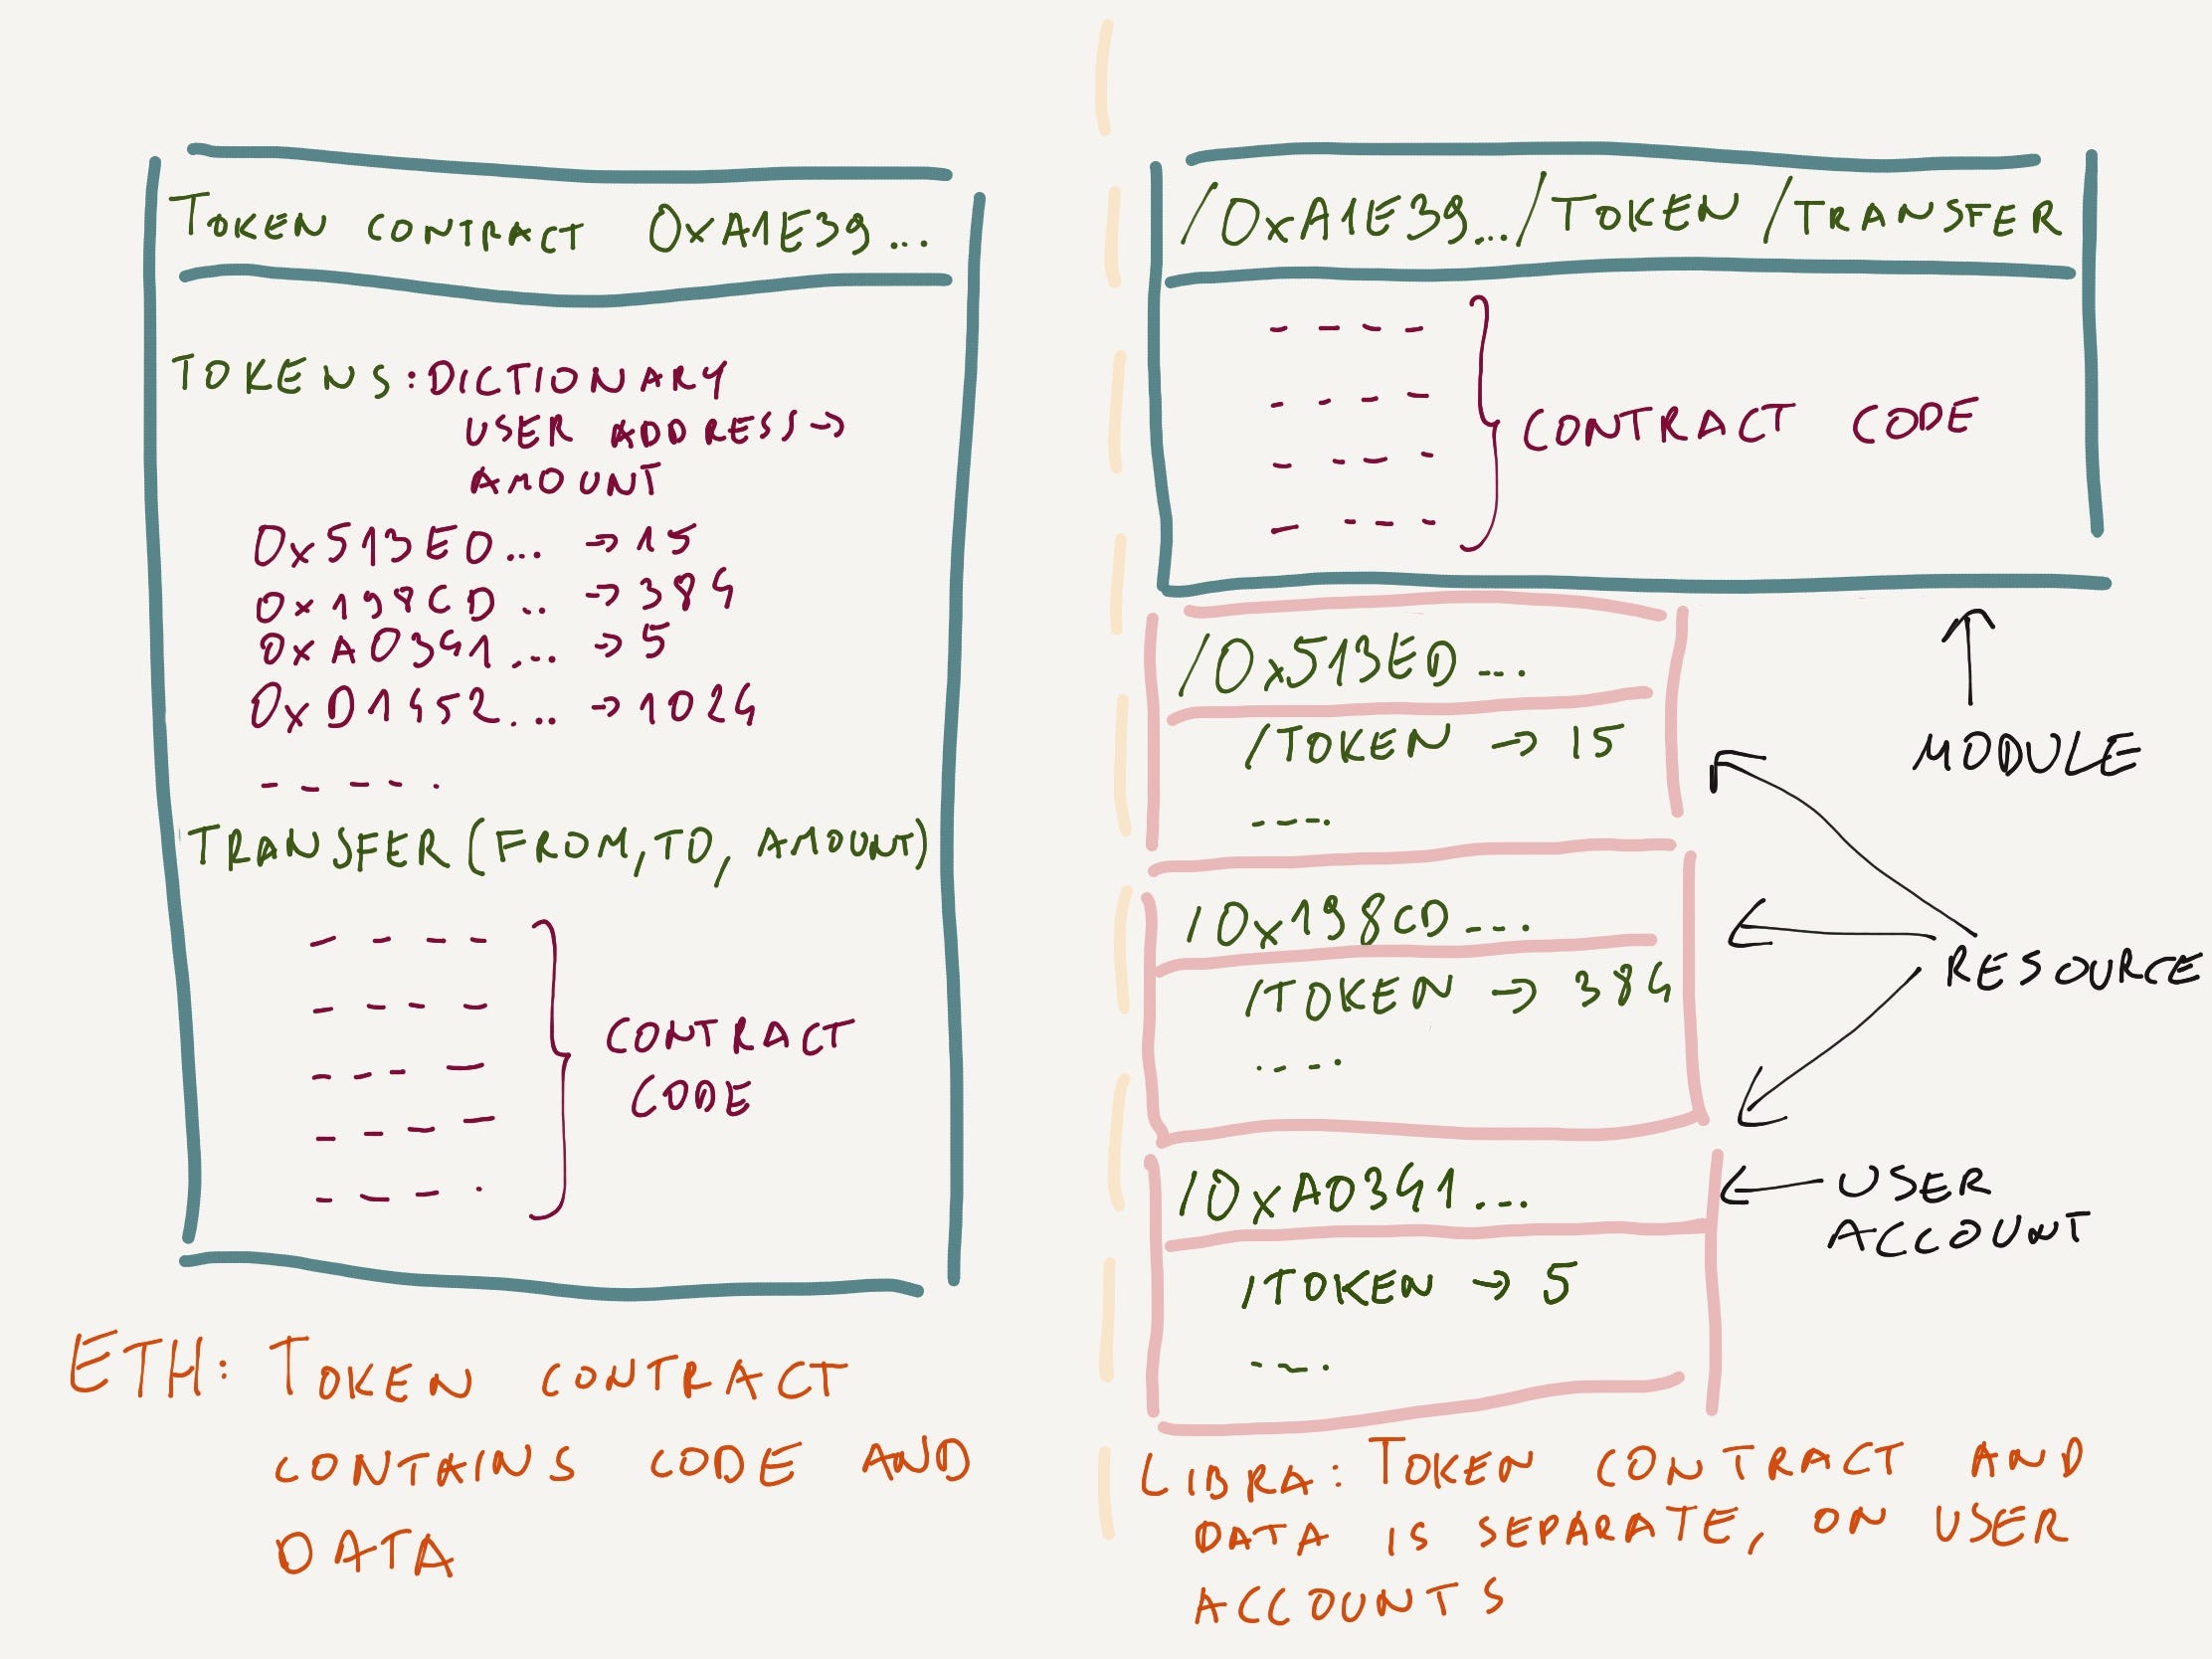 TOKEN CONTRACT 0XA1E39...
TOKENS: DICTIONARY
USER ADDRESS →
AMOUNT
0x513ED... → 15
0x198CD .. → 384
0xA0341 ... → 5
0xD1452... → 1024
TRANSFER (FROM, TO, AMOUNT)
CONTRACT
CODE
ETH: TOKEN CONTRACT
CONTAINS CODE AND
DATA
/0xA1E39.../TOKEN/TRANSFER
CONTRACT CODE
MODULE
/0x513ED...
/TOKEN → 15
/0x198CD...
/TOKEN → 384
RESOURCE
/0xA0341...
/TOKEN → 5
USER
ACCOUNT
LIBRA: TOKEN CONTRACT AND
DATA IS SEPARATE, ON USER
ACCOUNTS